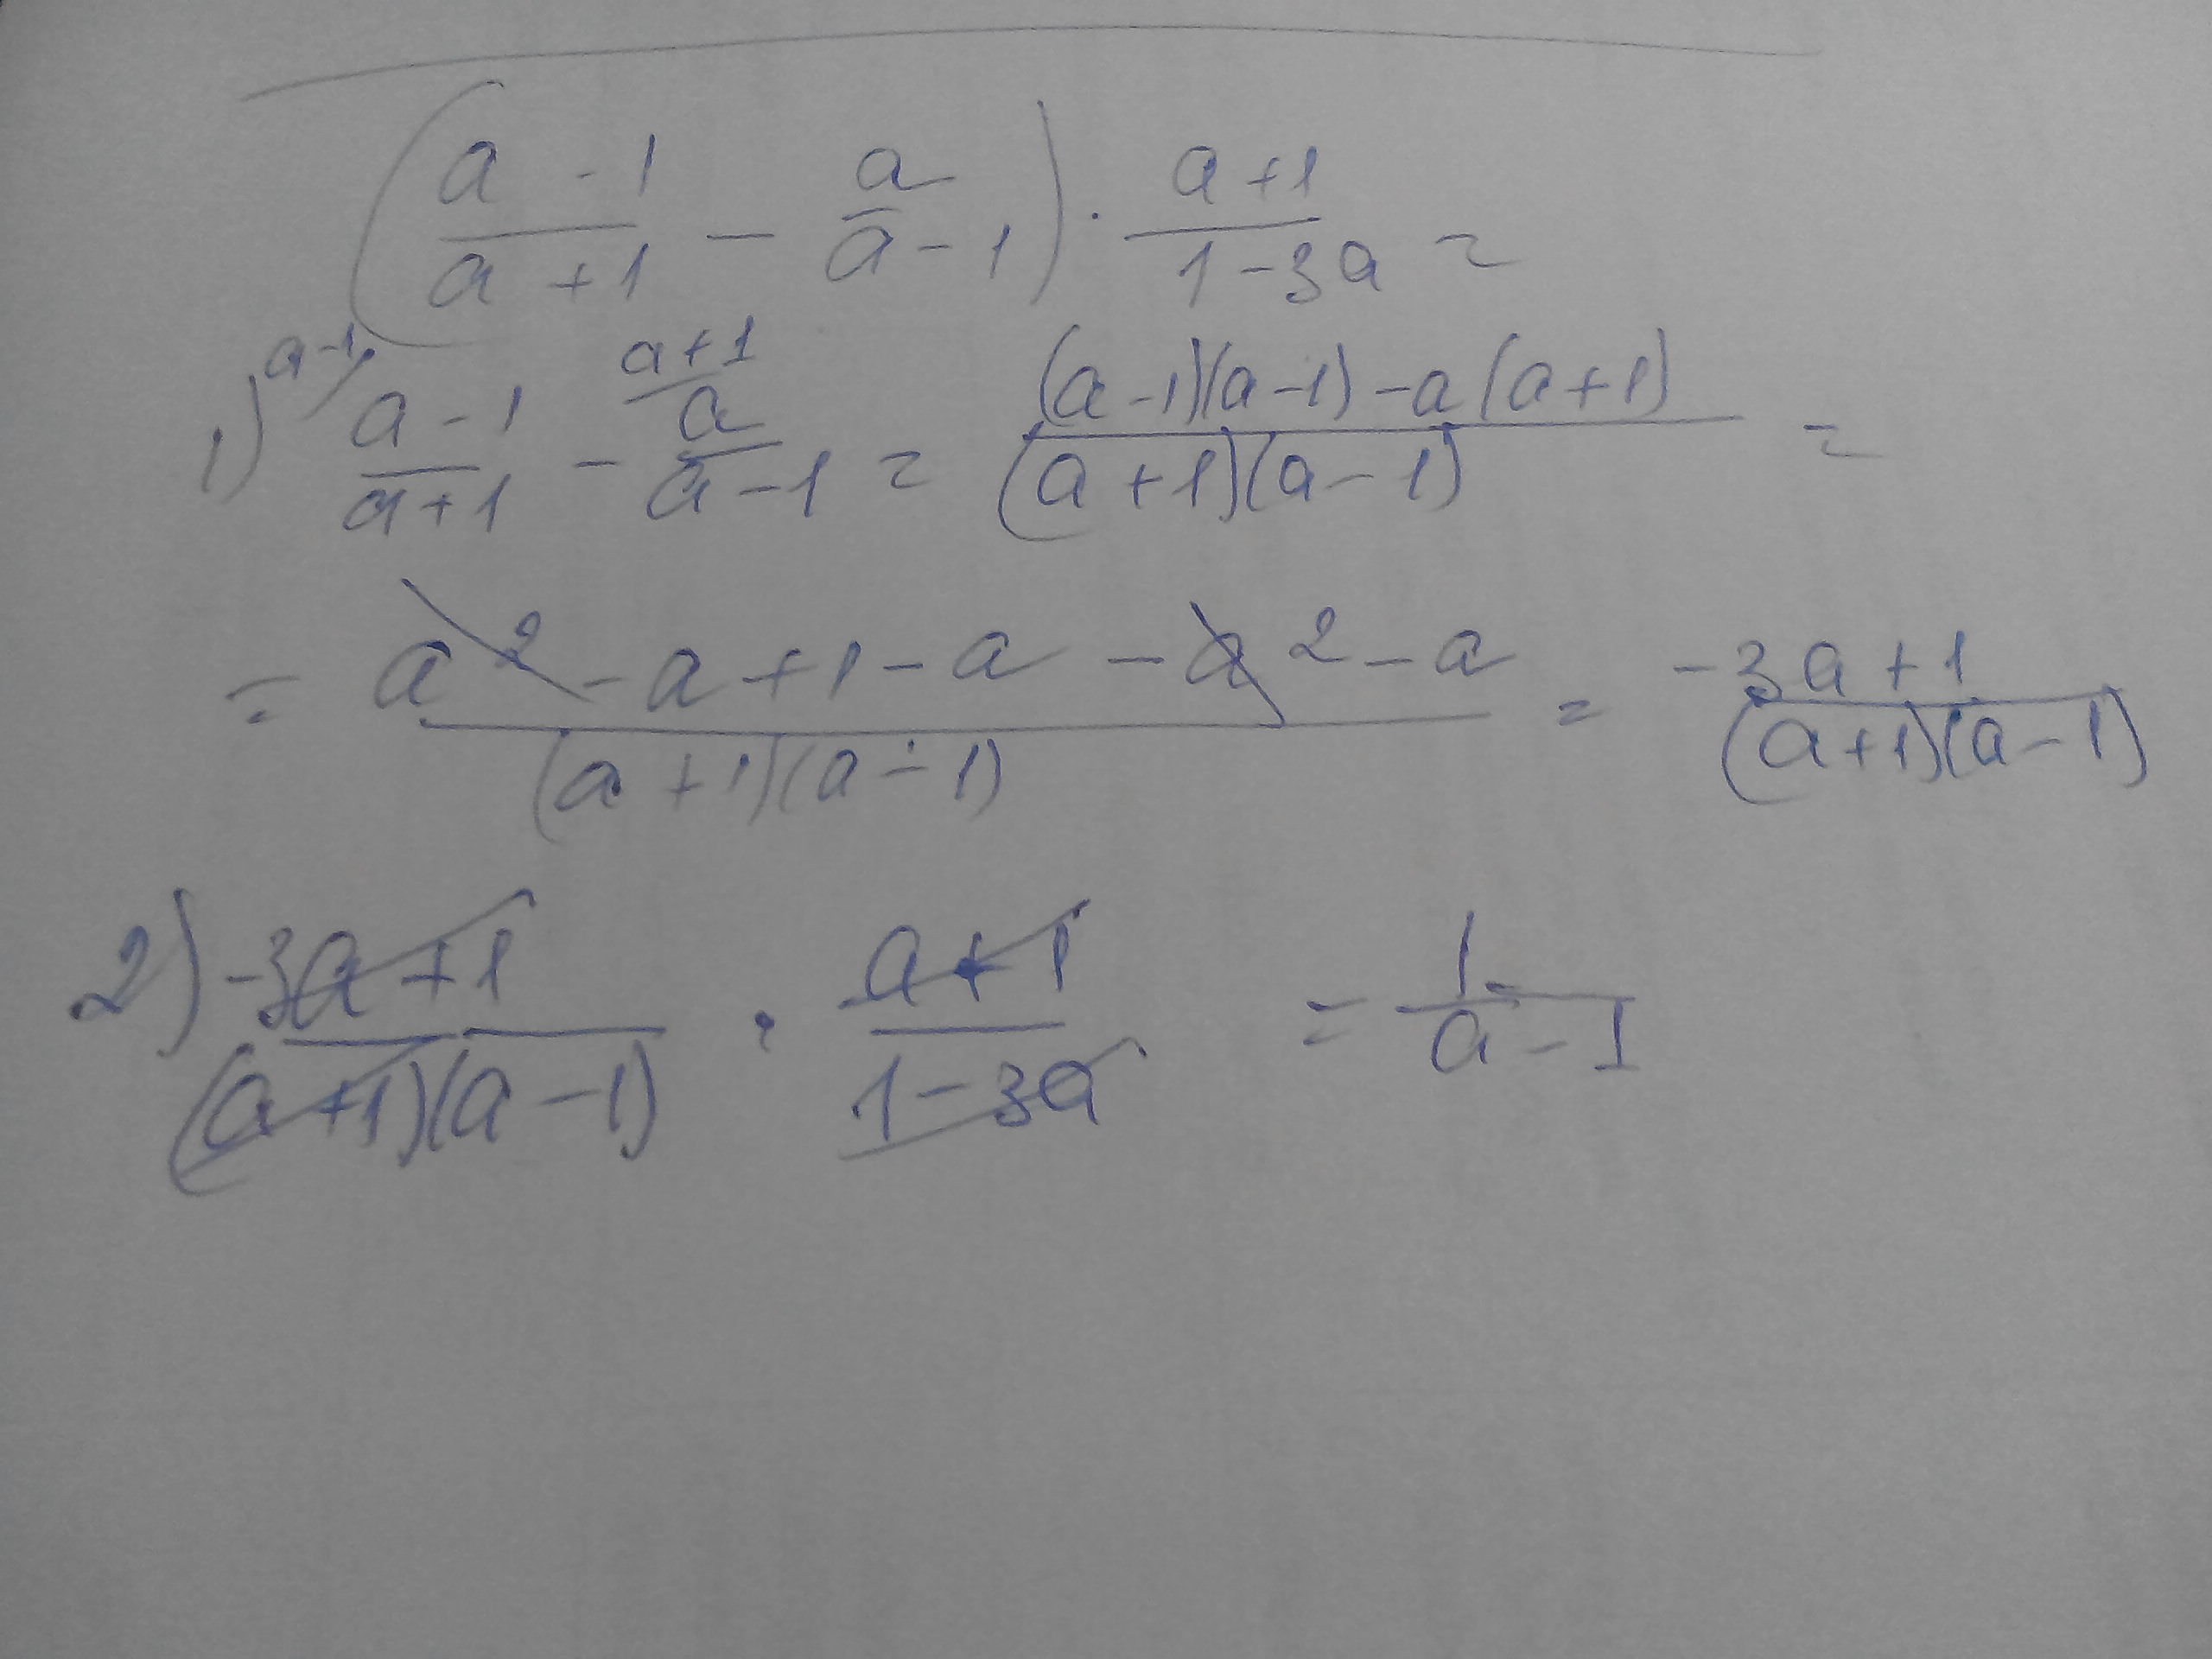 (a-1/a+1 - a/a-1) · a+1/1-3a =
1) a-1/ a-1/a+1 - a+1/ a/a-1 = (a-1)(a-1)-a(a+1)/(a+1)(a-1) =
= a²-a+1-a-a²-a/(a+1)(a-1) = -3a+1/(a+1)(a-1)
2) -3a+1/(a+1)(a-1) · a+1/1-3a = 1/a-1